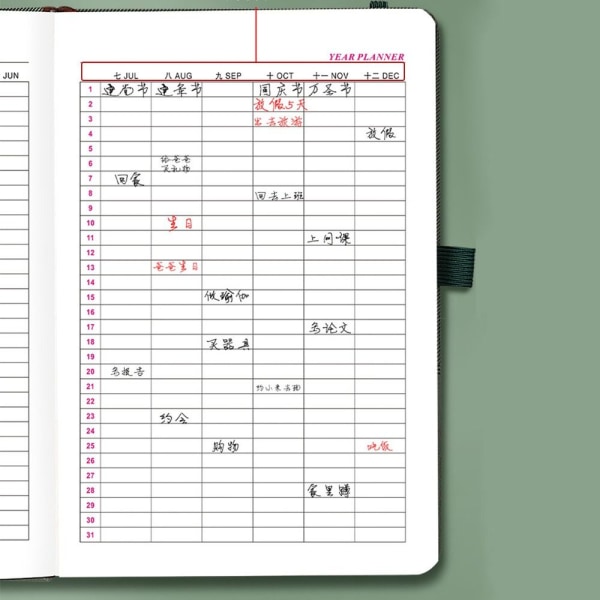 YEAR PLANNER
JUN 七 JUL 八 AUG 九 SEP 十 OCT 十一 NOV 十二 DEC
1 建南节 建军节 国庆节 万圣节
2 放假5天
3 出去旅游
4 放假
5
6 给爸爸买礼物
7 回家
8 回去上班
9
10 生日
11 上网课
12
13 爸爸生日
14
15 做瑜伽
16
17 写论文
18 买器具
19
20 写报告
21 约小米去拍
22
23 约会
24
25 购物 吃饭
26
27
28 家里蹲
29
30
31